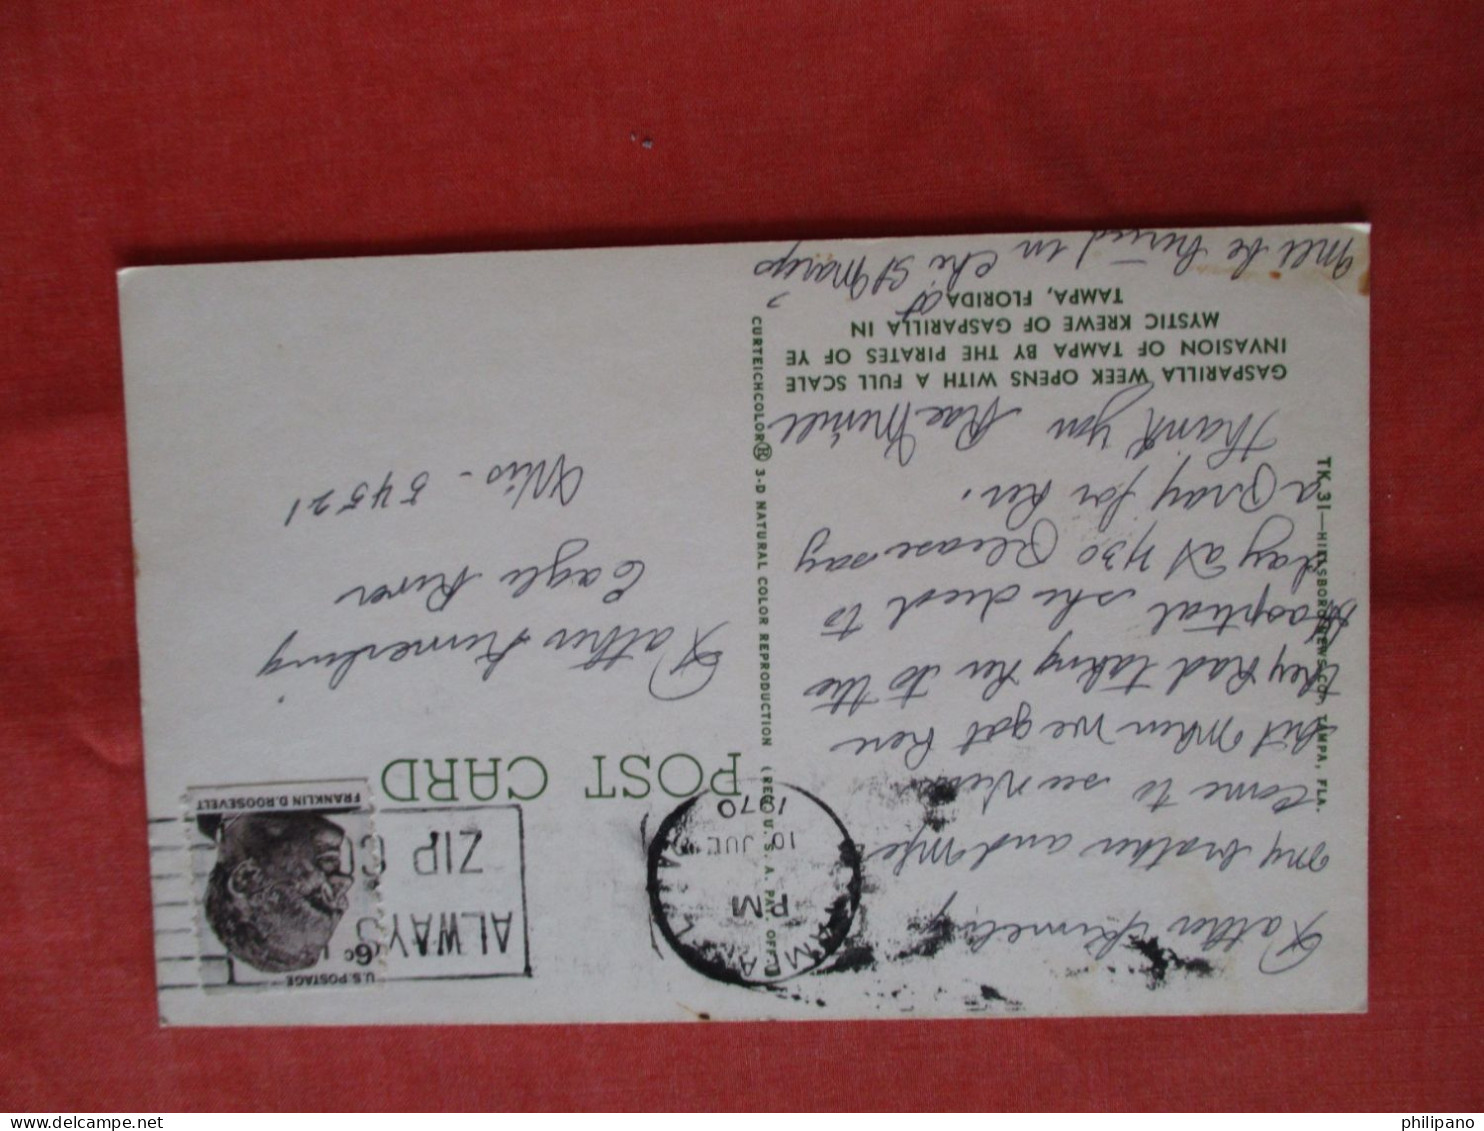 Mill be buried in Chi. at St Marys
GASPARILLA WEEK OPENS WITH A FULL SCALE
INVASION OF TAMPA BY THE PIRATES OF YE
MYSTIC KREWE OF GASPARILLA IN
TAMPA, FLORIDA
TK. 31—HILLSBORO NEWS CO., TAMPA, FLA.
Father
My brother and wife
come to see
but when we got here
they had taking her to the
Hospital she died to
day at 1/30 Please say
a pray for her.
Thank you Rae
CURTEICHCOLOR® 3-D NATURAL COLOR REPRODUCTION (REG. U. S. A. PAT. OFF.)
POST CARD
TAMPA
PM
10 JUL
1970
ALWAYS
ZIP CO
U.S. POSTAGE
6c
FRANKLIN D. ROOSEVELT
Father
Eagle River
Wis - 54521
philipano